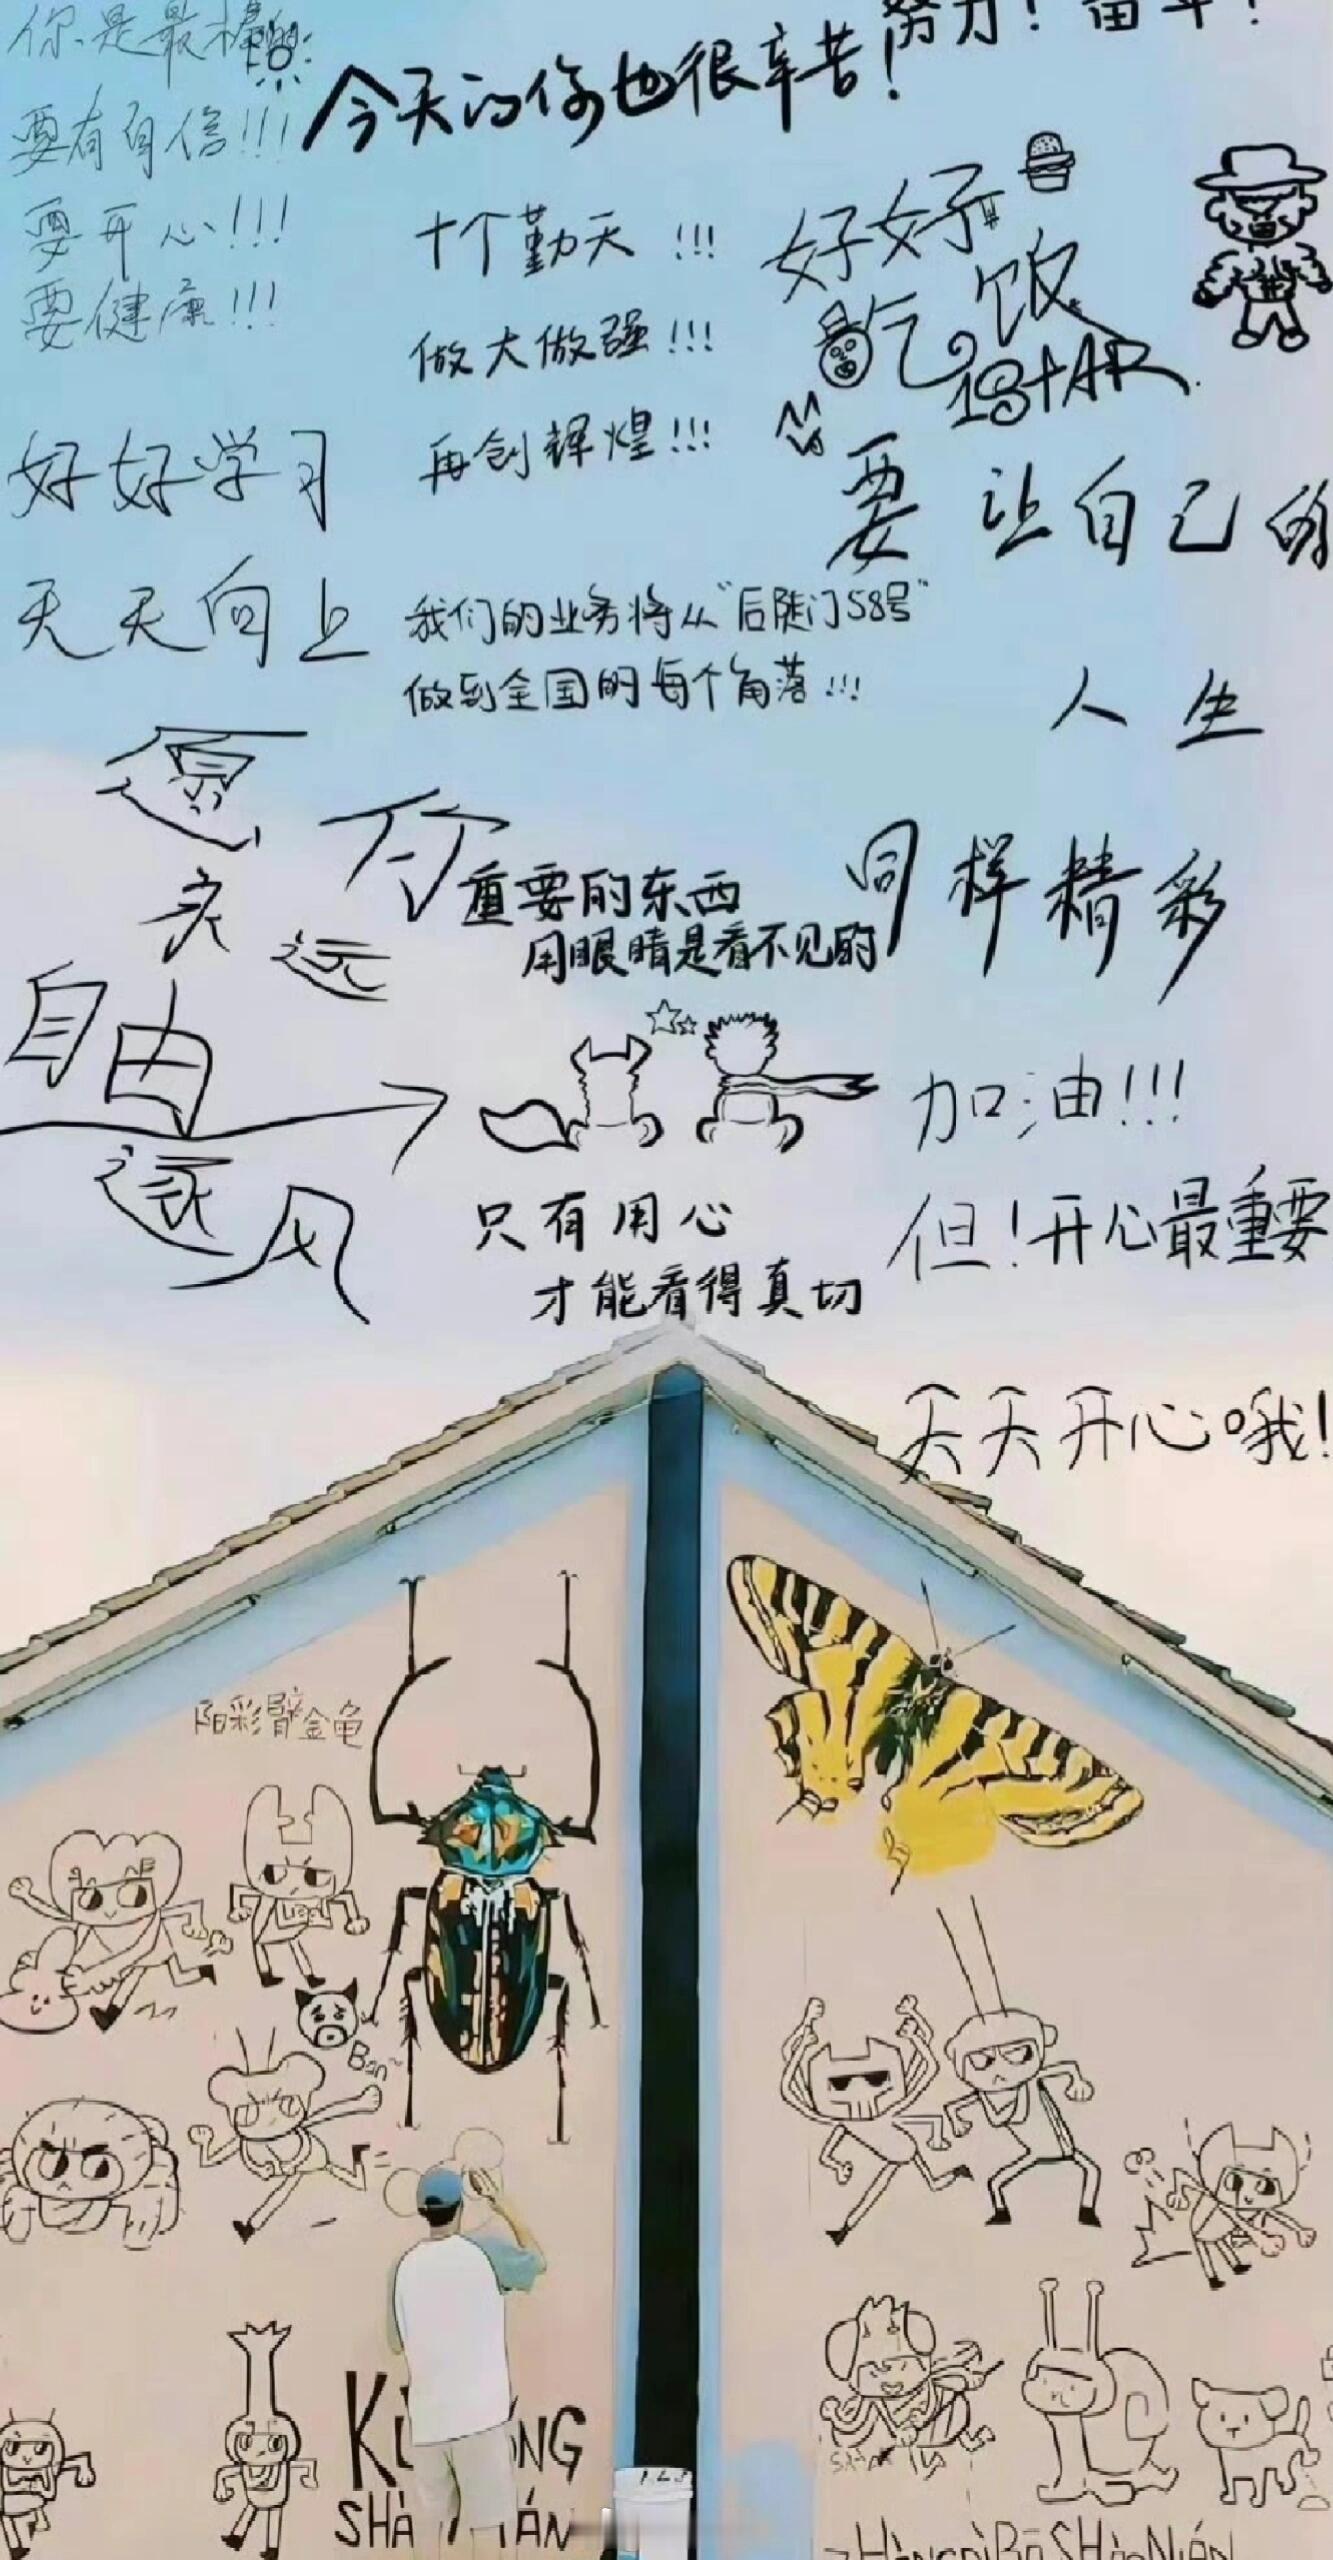 你是最棒的
要有自信!!!
要开心!!!
要健康!!!
今天的你也很辛苦!
努力!奋斗!
十个勤天!!!
做大做强!!!
再创辉煌!!!
好好
吃饭
1STAR
好好学习
天天向上
要让自己的
人生
同样精彩
我们的业务将从“后陡门58号”
做到全国的每个角落!!!
愿你
永远
自由
逐风
重要的东西
用眼睛是看不见的
只有用心
才能看得真切
加油!!!
但!开心最重要
天天开心哦!
阳彩臂金龟
Ban~
SHàNIáN
HàngdìBāSHàoNián